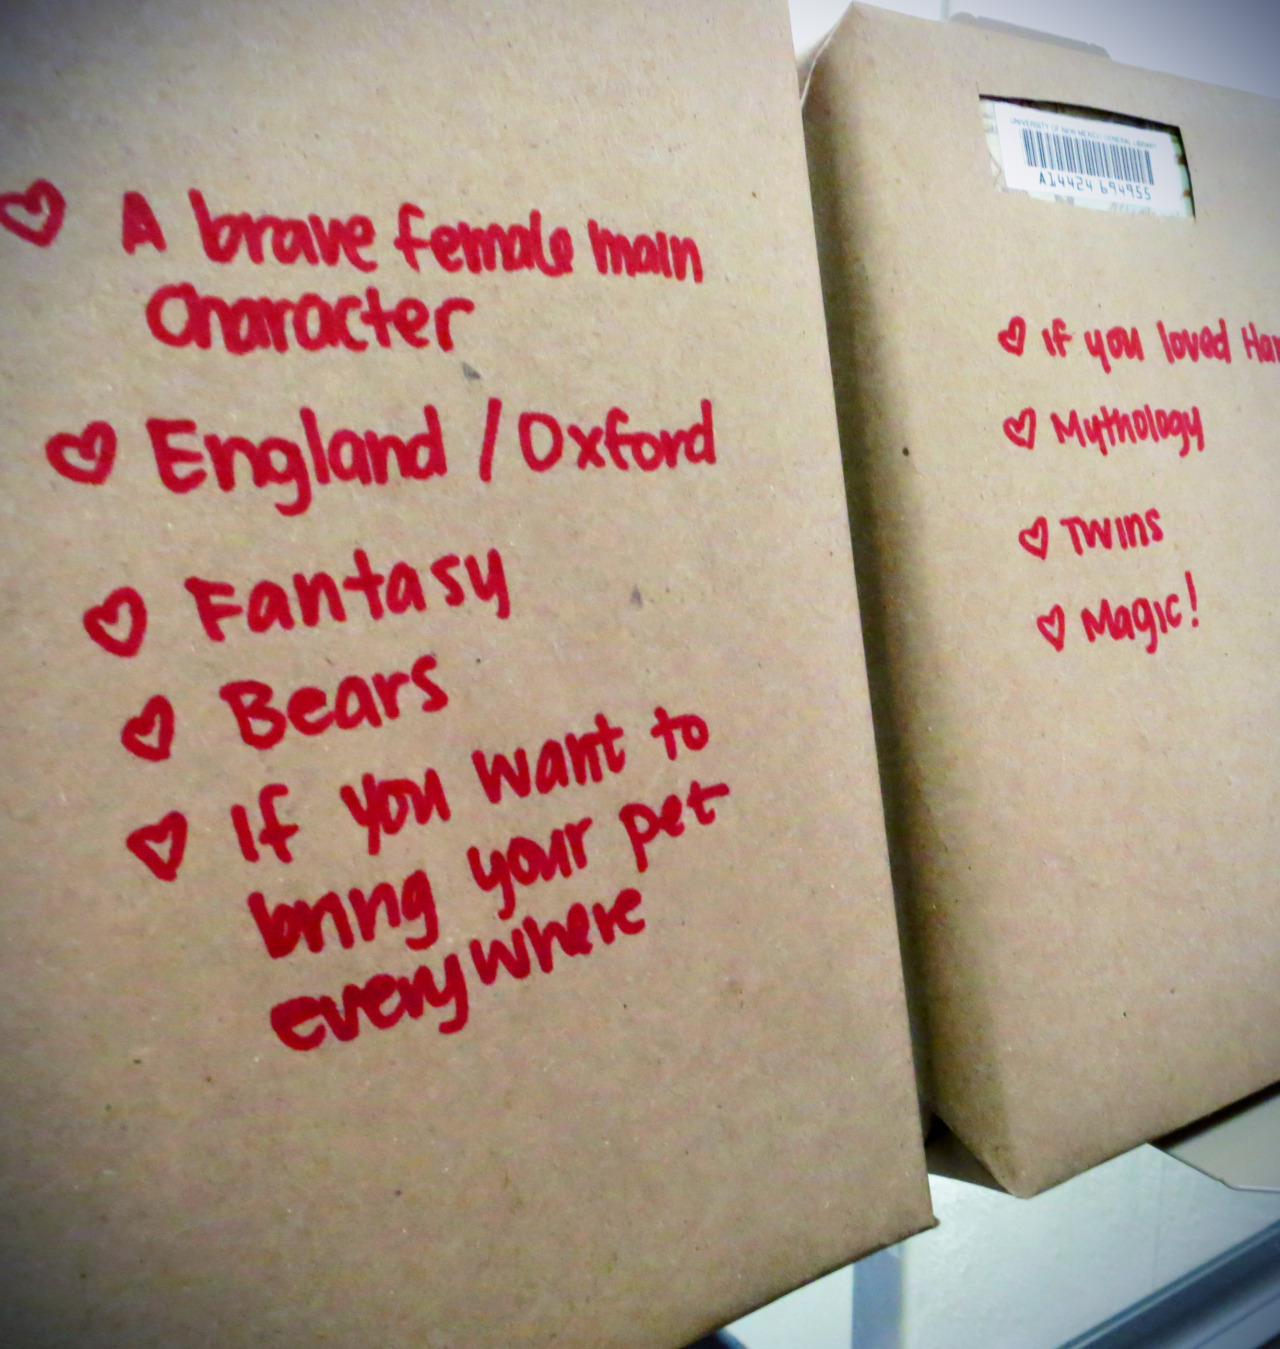 A brave female main
character
England / Oxford
Fantasy
Bears
If you want to
bring your pet
everywhere
UNIVERSITY OF NEW MEXICO GENERAL LIBRARY
A14424 694955
If you loved Har
Mythology
Twins
Magic!